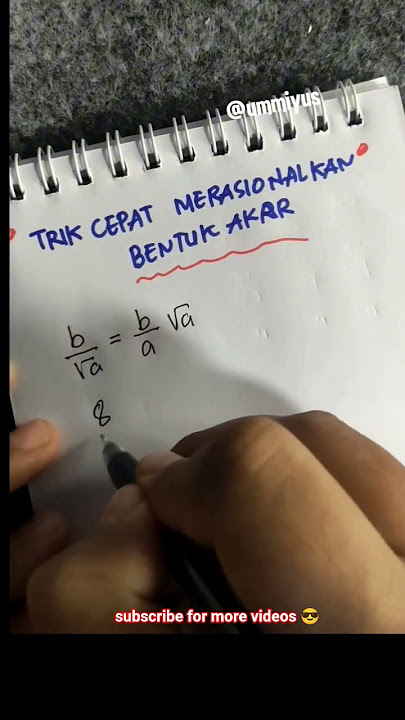 @ummiyus
TRIK CEPAT MERASIONALKAN
BENTUK AKAR
b/√a = b/a √a
8
subscribe for more videos 😎